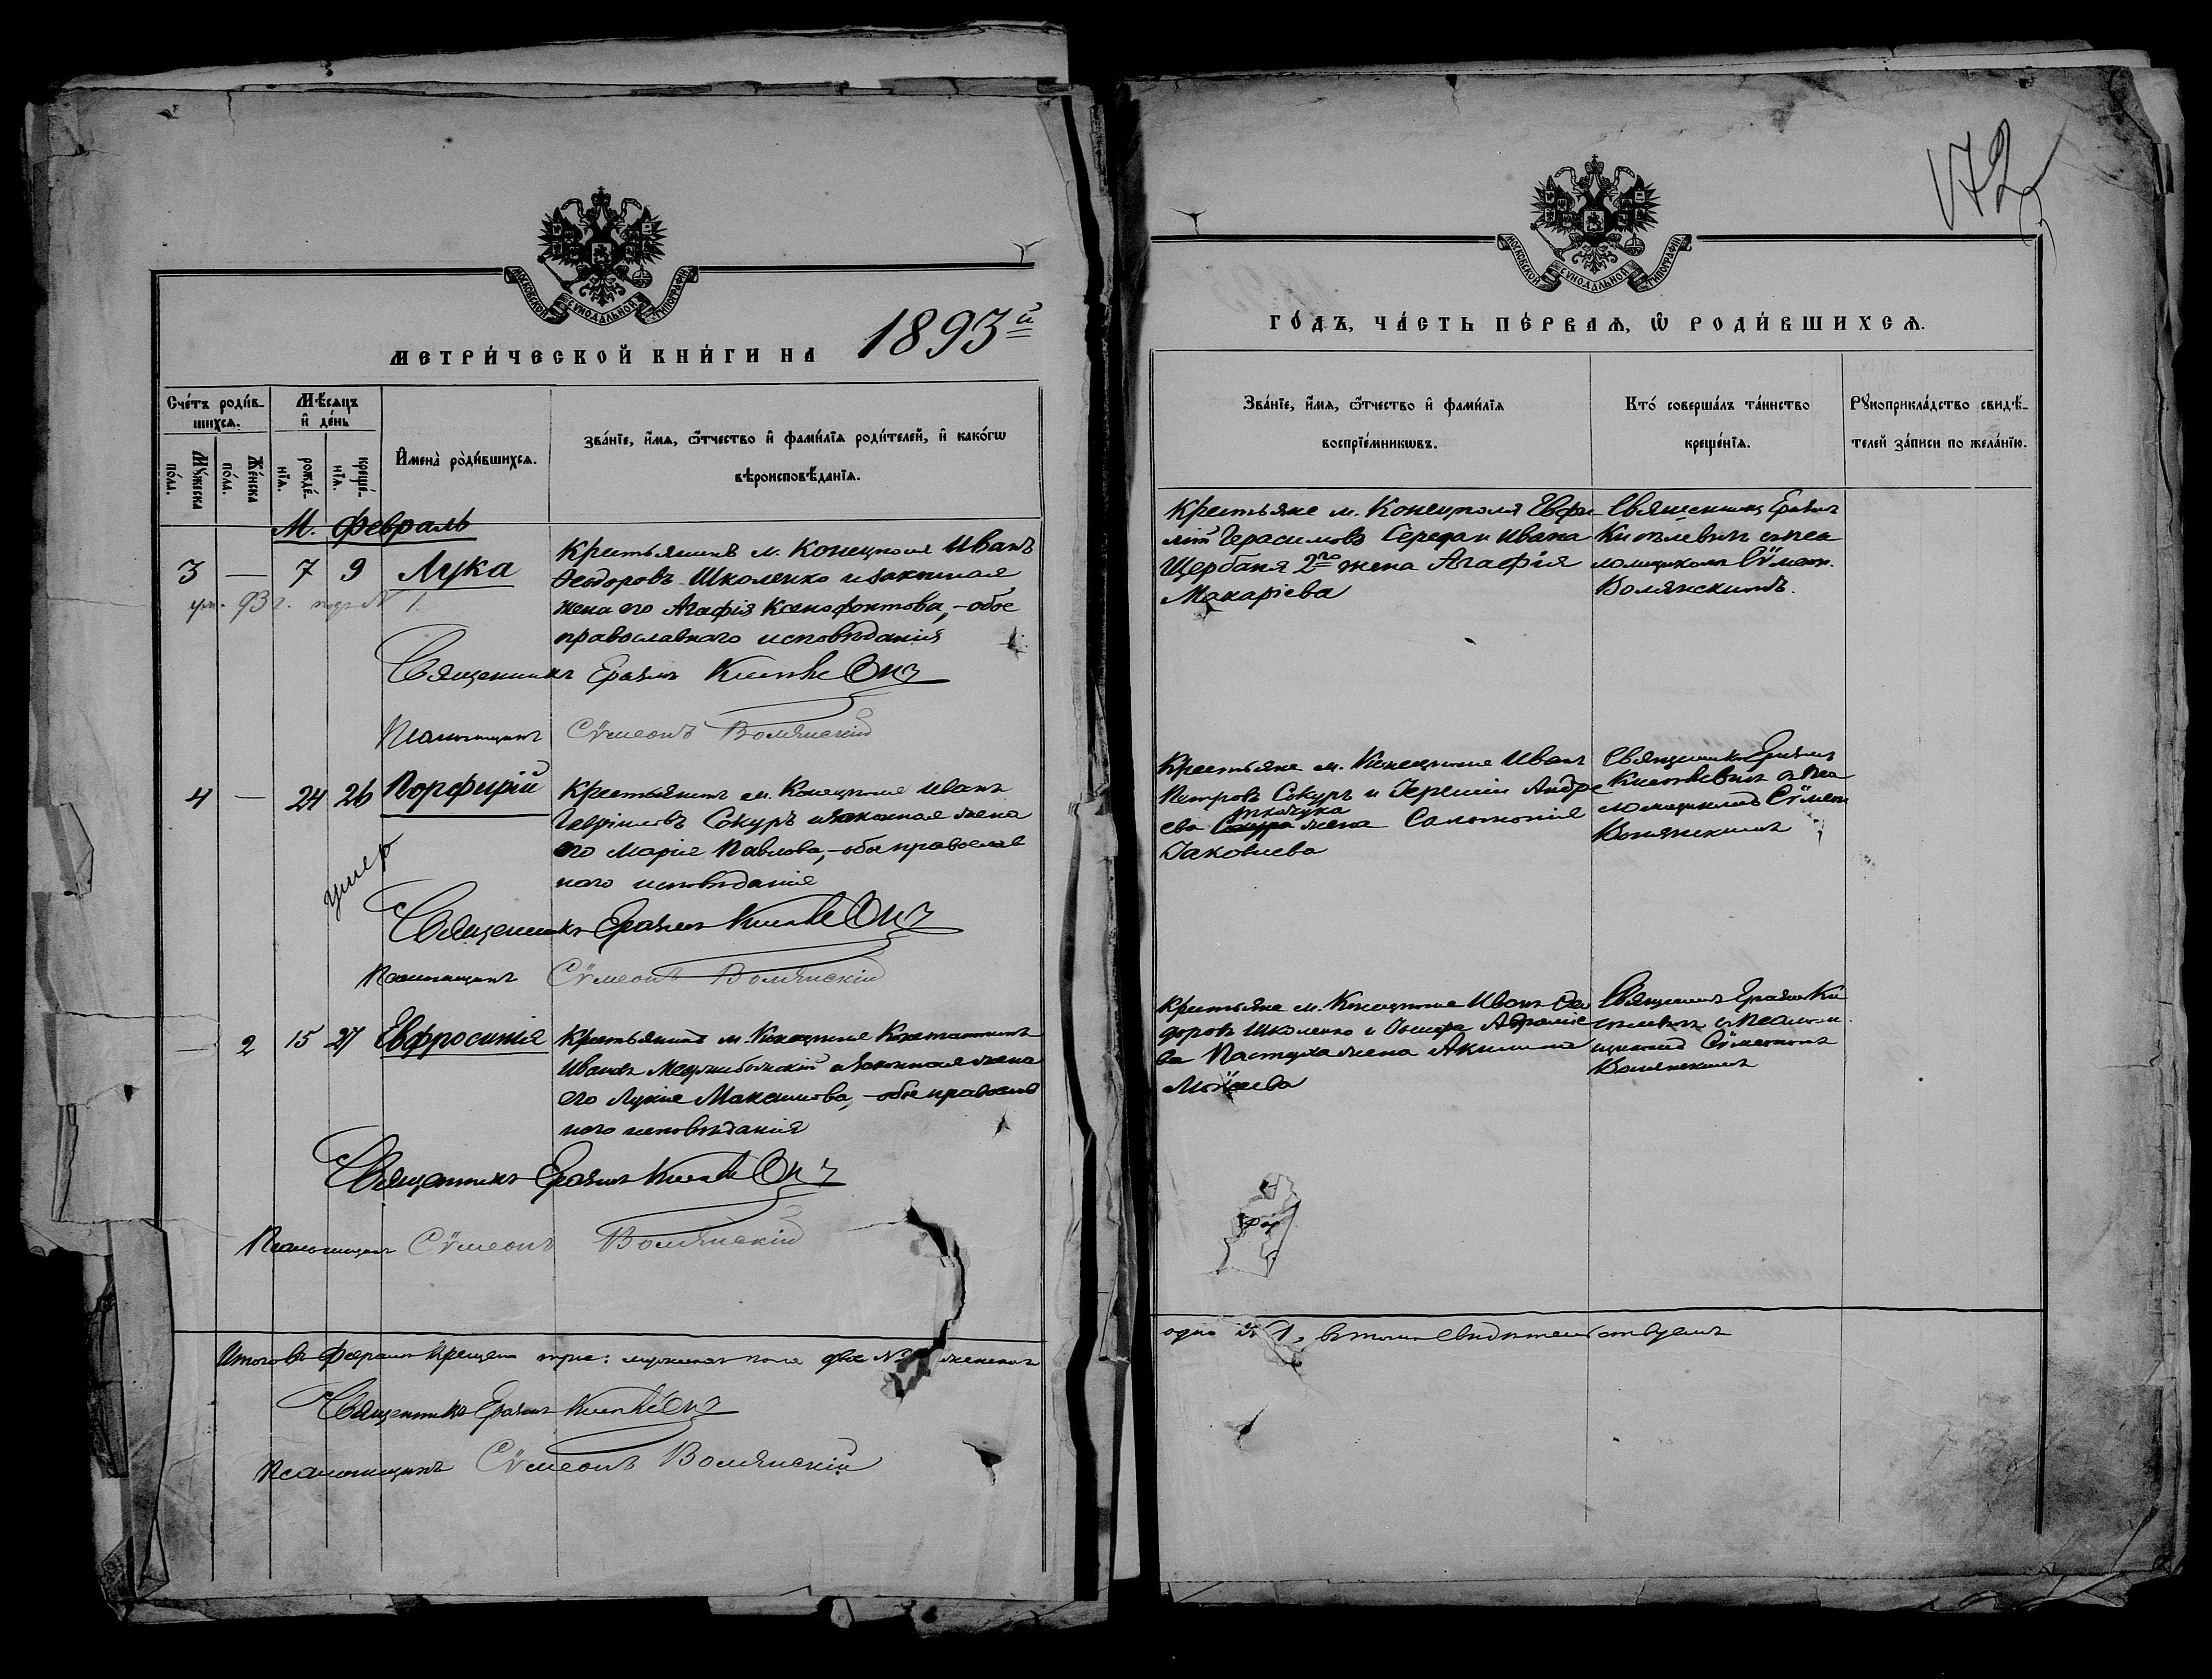 МОСКОВСКОЙ СѴНОДАЛЬНОЙ ТИПОГРАФІИ
МЕТРИ́ЧЕСКОЙ КНИ́ГИ НА 1893й
Сче́тъ роди́в-
шихсѧ.
Мѣ́сѧцъ
и҆ де́нь
Мꙋ́жеска
по́ла.
Же́нска
по́ла.
рожде́-
нїѧ.
креще́-
нїѧ.
И҆мена̀ роди́вшихсѧ.
Зва́нїе, и҆́мѧ, ѻ҆́тчество и҆ фами́лїѧ роди́телей, и҆ како́гѡ
вѣроисповѣ́данїѧ.
М. Февраль
3 — 7 9 Лука
ум. 93 г. подъ № 1
Крестьянинъ м. Конецполя Иванъ
Ѳеодоровъ Школенко и законная
жена его Агафія Ксенофонтова, – обое
православнаго исповѣданія
Священникъ Еразмъ
Псаломщикъ Сѵмеонъ Волянскій
4 — 24 26 Порфирій
умер
Крестьянинъ м. Конецполя Иванъ
Гавріиловъ Сокуръ и законная жена
его Марія Павлова, – обое православ
наго исповѣданія
Священникъ Еразмъ
Псаломщикъ Сѵмеонъ Волянскій
— 2 15 27 Евфросинія
Крестьянинъ м. Конецполя Константинъ
Ивановъ и законная жена
его Лукія Максимова, – обое православ
наго исповѣданія
Священникъ Еразмъ
Псаломщикъ Сѵмеонъ Волянскій
Итого въ Февралѣ крещено трое: мужескаго пола двое № женскаго
Священникъ Еразмъ
Псаломщикъ Сѵмеонъ Волянскій
172
МОСКОВСКОЙ СѴНОДАЛЬНОЙ ТИПОГРАФІИ
ГО́ДЪ, ЧА́СТЬ ПЕ́РВАѦ, Ѡ҆ РОДИ́ВШИХСѦ.
Зва́нїе, и҆́мѧ, ѻ҆́тчество и҆ фами́лїѧ
воспрїе́мникѡвъ.
Кто́ соверша́лъ та́инство
креще́нїѧ.
Рꙋкоприкла́дство свидѣ́-
телей за́писи по жела́нїю.
Крестьяне м. Конецполя Евфи
мій Герасимовъ Середа и Ивана
Щербаня 2го жена Агафія
Макаріева
Священникъ Еразмъ
съ пса
ломщикомъ Сѵмеон.
Волянскимъ.
Крестьяне м. Конецполя Иванъ
Петровъ Сокуръ и Іереміи Андре
ева Ткачука жена Саломонія
Іаковлева
Священникъ Еразмъ
съ пса
ломщикомъ Сѵмеон
Волянскимъ
Крестьяне м. Конецполя Иванъ Ѳео
доровъ Школенко и Іосифа Авраміе
ва Пастуха жена Акилина
Моѵсеева
Священникъ Еразмъ
съ псалом
щикомъ Сѵмеономъ
Волянскимъ
одно № 1, въ томъ свидѣтельствуемъ